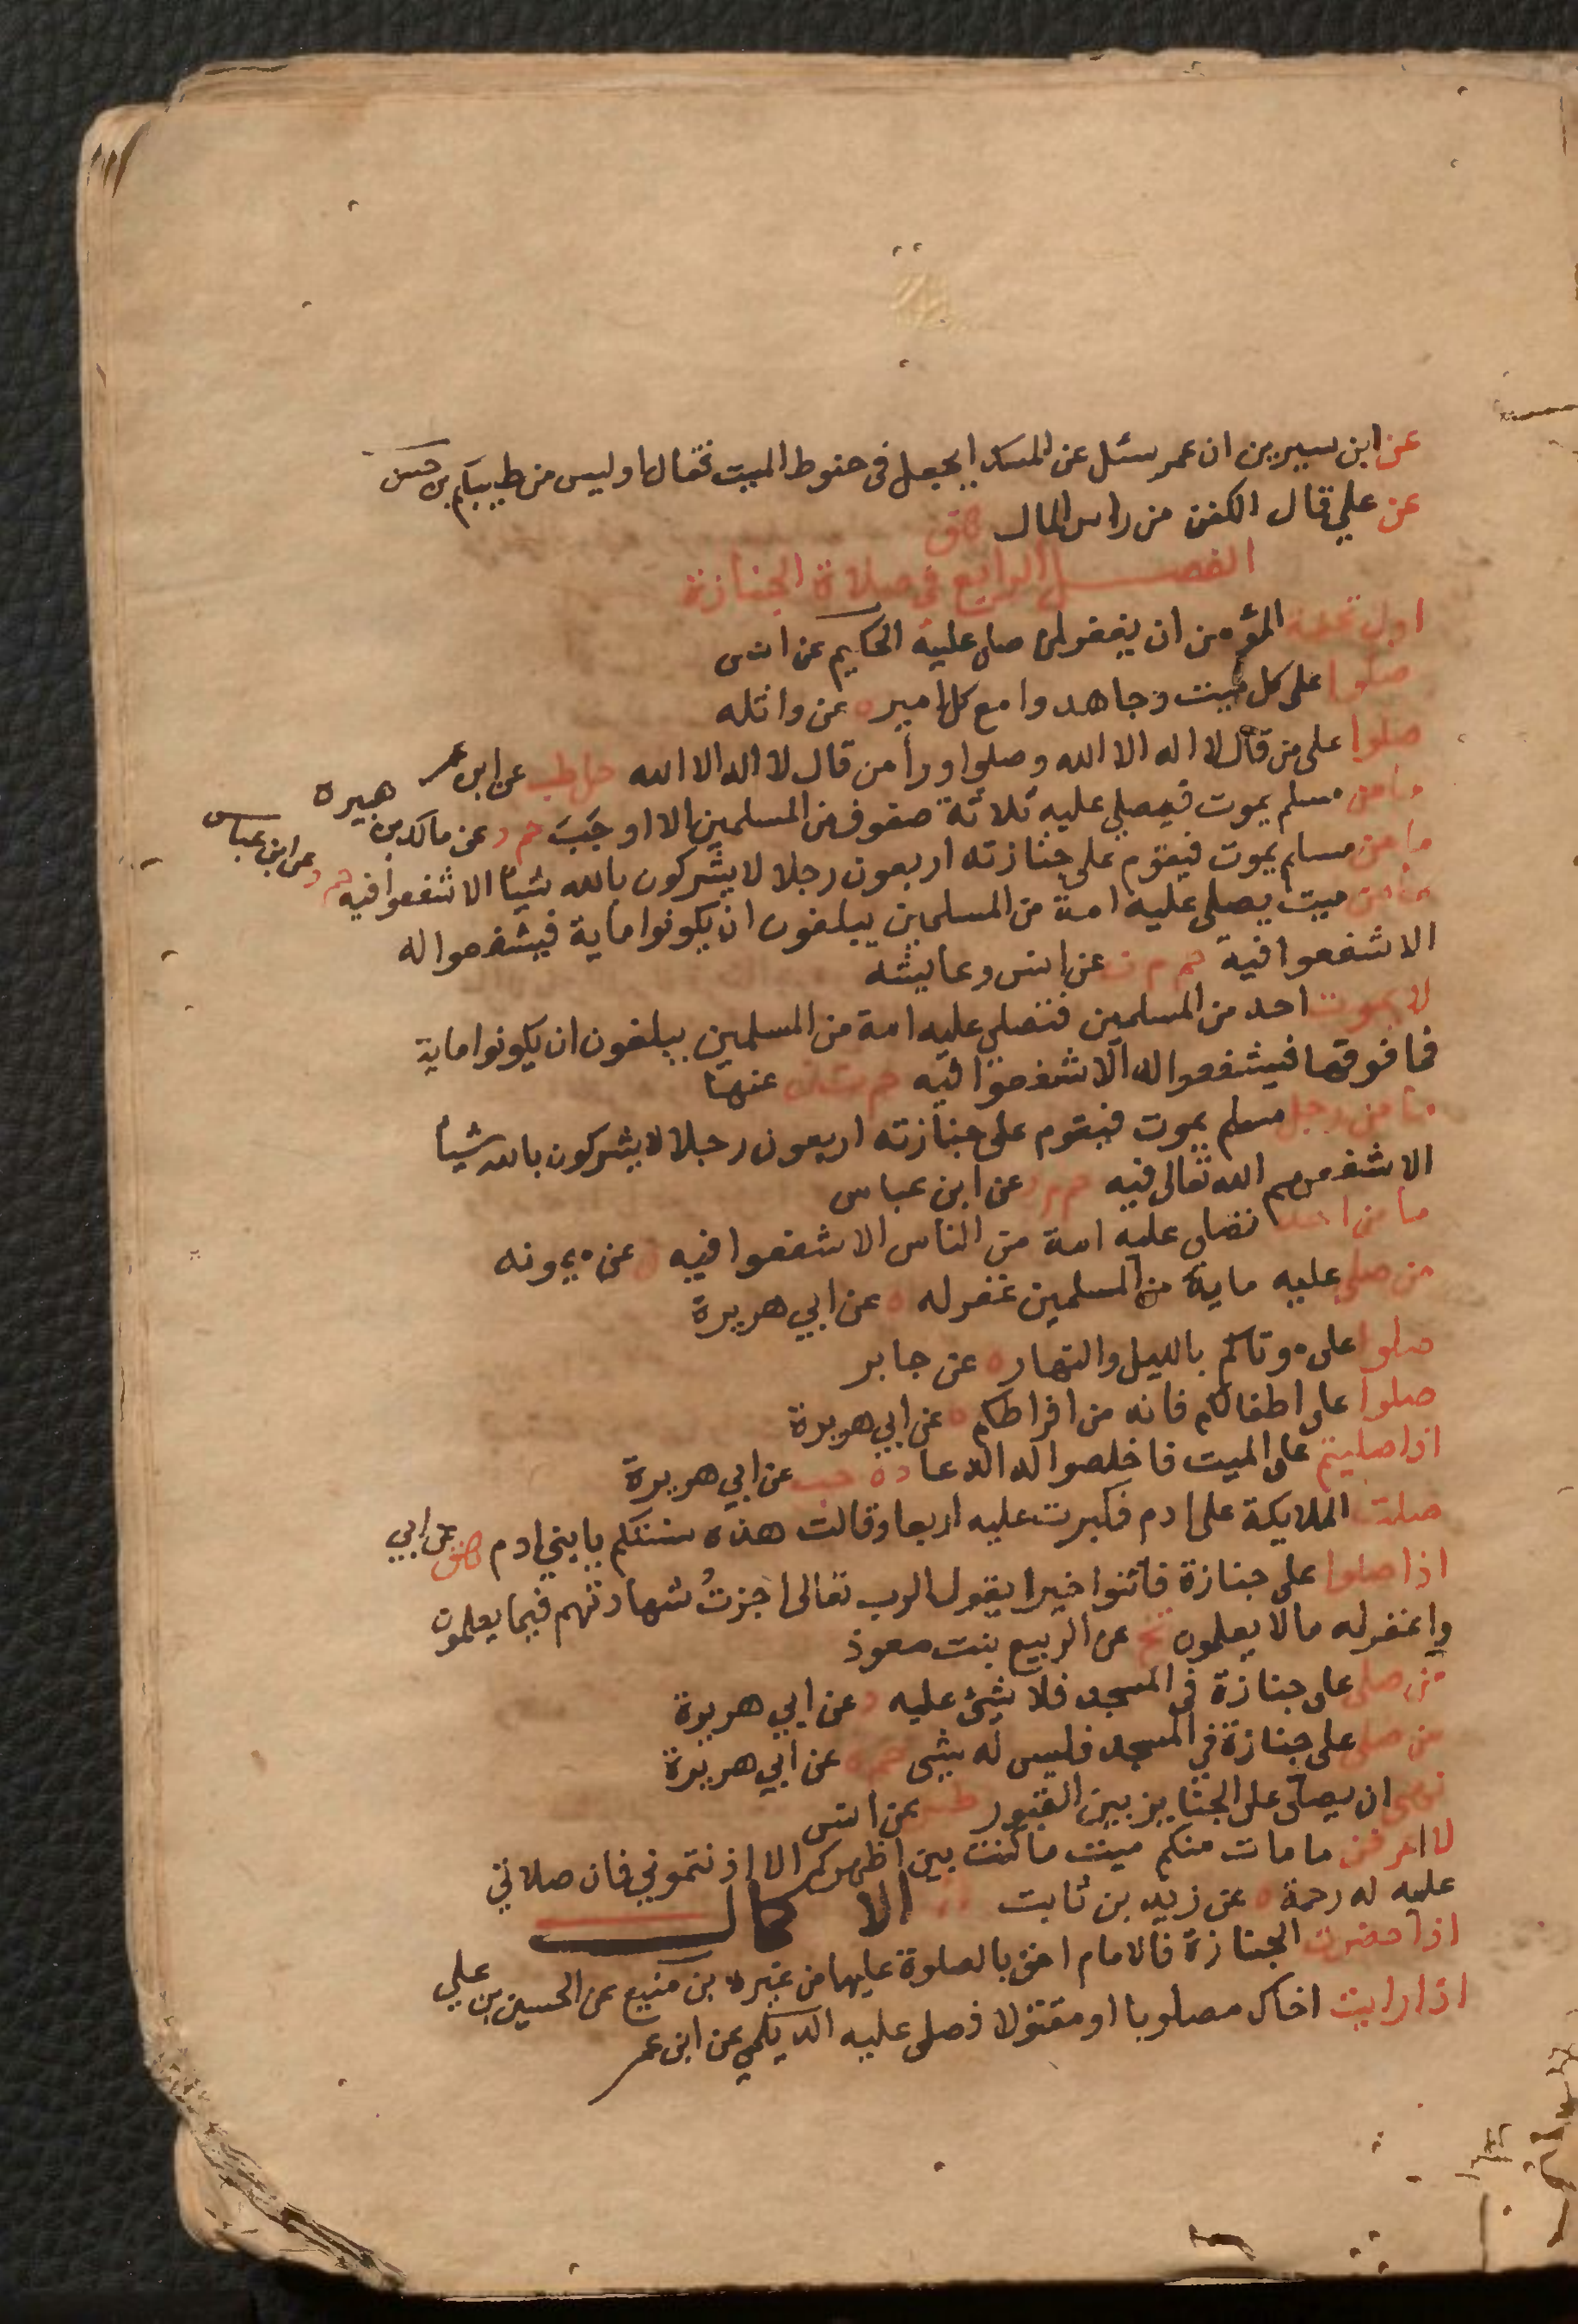 عن ابن سيرين ان عمر سئل عن المسك ايجعل فى حنوط الميت فقال اوليس من طيبكم بن حسن
عن علي قال الكفن من راس المال هق
الفصل الرابع فى صلاة الجنازة
اول تحفة المؤمن ان يغفر لمن صلى عليه الحكيم عن انس
صلوا على كل ميت وجاهدوا مع كل امير ه عن واثله
صلوا على من قال لا اله الا الله وصلوا ورأ من قال لا اله الا الله حل طب عن ابن عمر
ما من مسلم يموت فيصلي عليه ثلاثة صفوف من المسلمين الا اوجب حم د عن مالك بن هبيره
ما من مسلم يموت فيقوم على جنازته اربعون رجلا لا يشركون بالله شيأ الا شفعوا فيه حم د عن ابن عباس
ما من ميت يصلى عليه امة من المسلمين يبلغون ان يكونوا ماية فيشفعوا له
الا شفعوا فيه حم م ن عن انس وعايشه
لا يموت احد من المسلمين فتصلي عليه امة من المسلمين يبلغون ان يكونوا ماية
فما فوقها فيشفعوا له الا شفعوا فيه حم ت ن عنها
ما من رجل مسلم يموت فيقوم على جنازته اربعون رجلا لا يشركون بالله شيأ
الا شفعهم الله تعالى فيه حم م د عن ابن عباس
ما من احد تصلى عليه امة من الناس الا شفعوا فيه ن عن ميمونه
من صلى عليه ماية من المسلمين غفر له ه عن ابي هريرة
صلوا على موتاكم بالليل والنهار ه عن جابر
صلوا على اطفالكم فانه من افراطكم ه عن ابي هريرة
اذا صليتم على الميت فاخلصوا له الدعا د ه حب عن ابي هريرة
صلت الملايكة على ادم فكبرت عليه اربعا وقالت هذه سنتكم يا بني ادم هق عن ابي
اذا صلوا على جنازة فاثنوا خيرا يقول الرب تعالى اجزت شهادتهم فيما يعلمون
واغفر له ما لا يعلمون تخ عن الربيع بنت معوذ
من صلى على جنازة فى المسجد فلا شئ عليه د عن ابي هريرة
من صلى على جنازة في المسجد فليس له شى حم ه عن ابي هريرة
نهى ان يصلى على الجنايز بين القبور طس عن انس
لا اعرفن ما مات منكم ميت ما كنت بين اظهركم الا اذنتموني فان صلاتي
عليه له رحمة ه عن زيد بن ثابت الاكمال
اذا حضرت الجنازة فالامام احق بالصلوة عليها من غيره بن منيع عن الحسين بن علي
اذا رايت اخاك مصلوبا او مقتولا فصلى عليه الديلمي عن ابن عمر